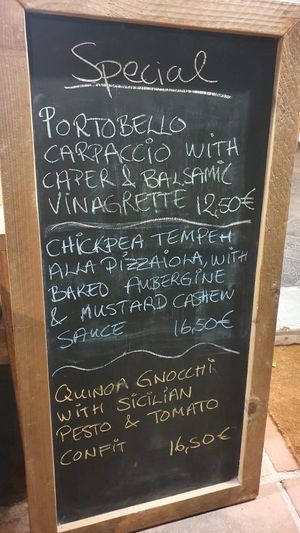 Special
PORTOBELLO
CARPACCIO WITH
CAPER & BALSAMIC
VINAGRETTE 12,50€
CHICKPEA TEMPEH
ALLA PIZZAIOLA, WITH
BAKED AUBERGINE
& MUSTARD CASHEW
SAUCE 16,50€
QUINOA GNOCCHI
WITH SICILIAN
PESTO & TOMATO
CONFIT 16,50€